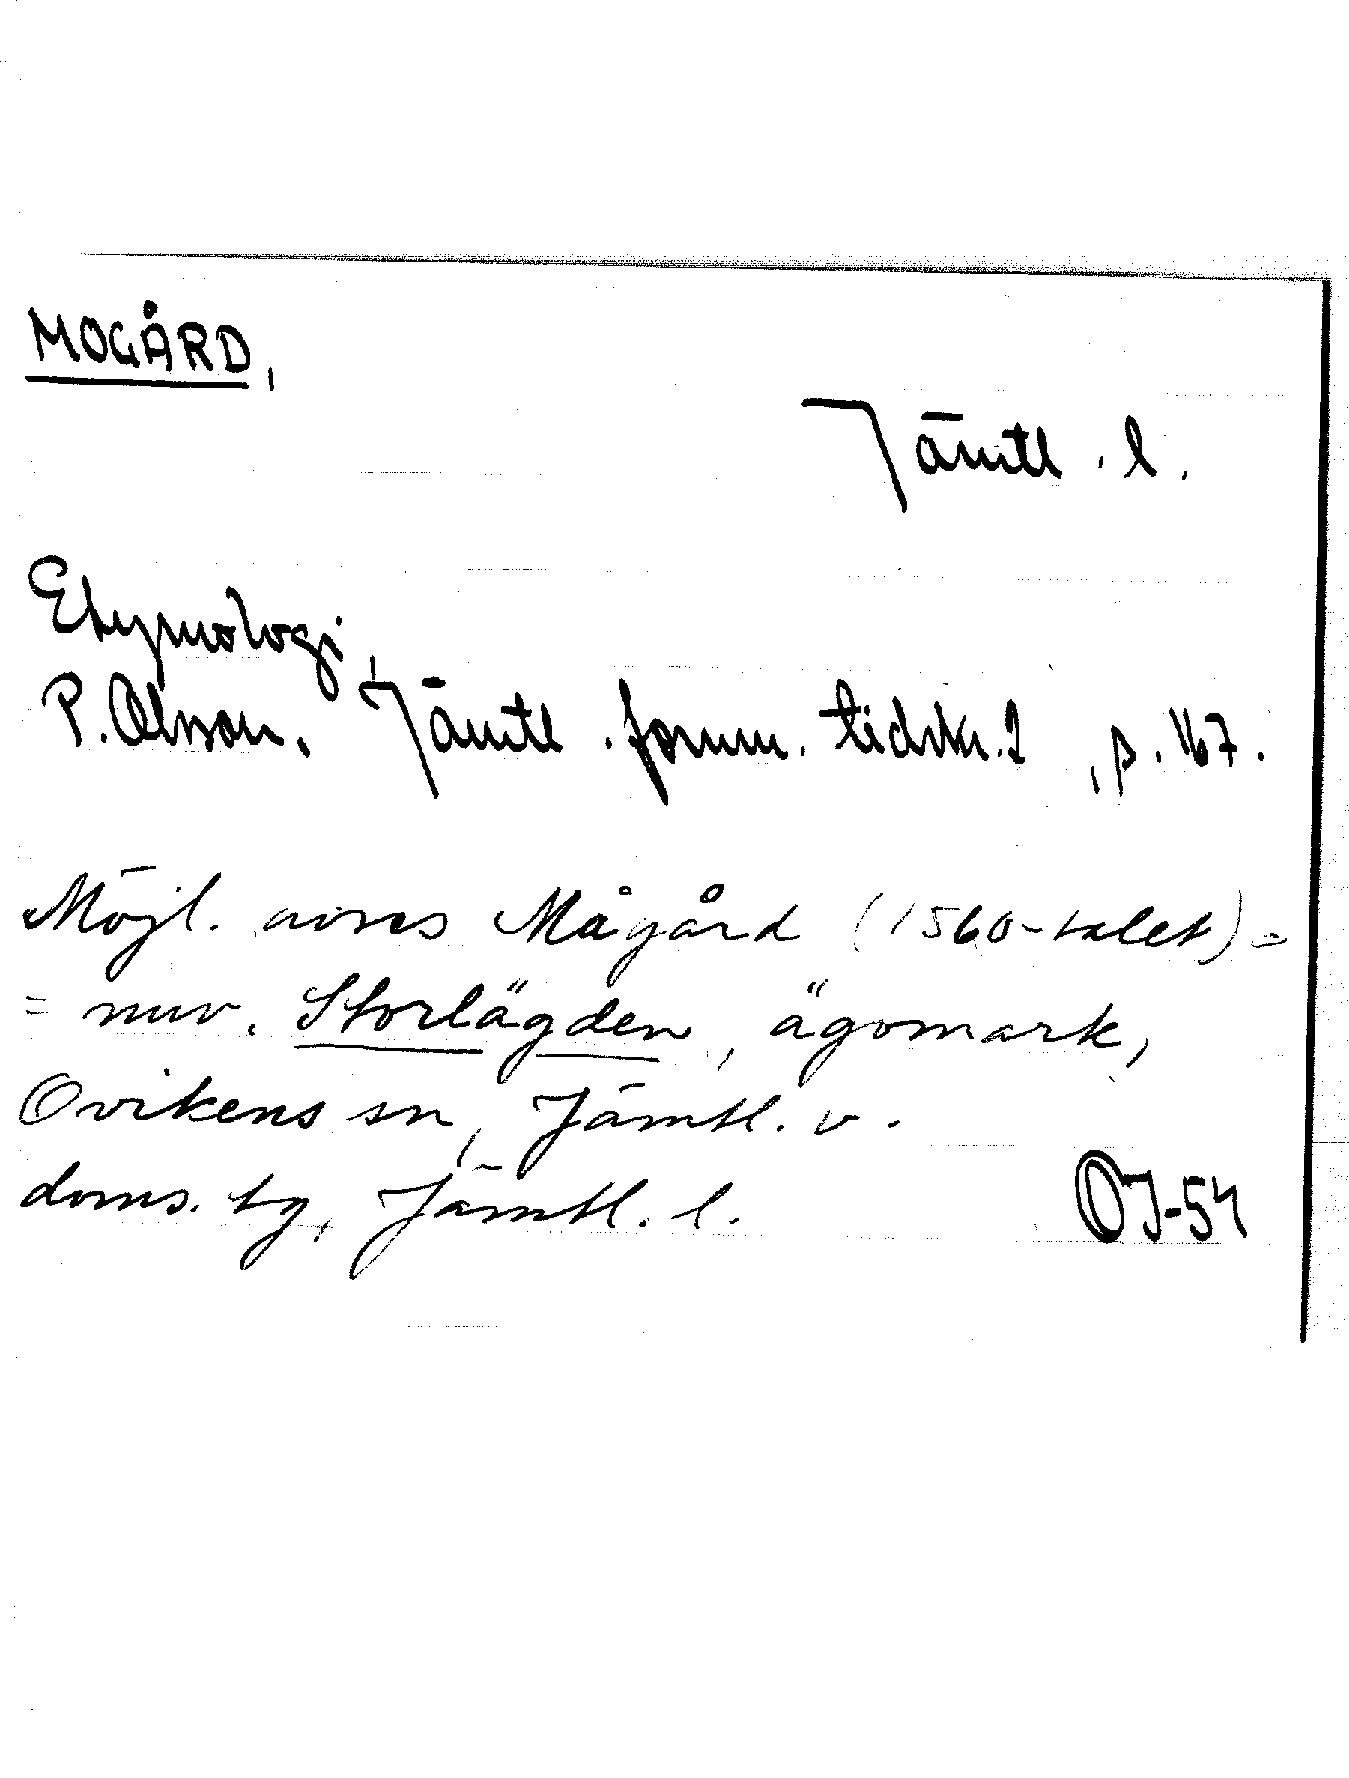 MOGÅRD,
Jämtl. l.
Etymologi,
P. Olsson. Jämtl. fornm. tidskr. 2, p. 167.
Möjl. avses Mågård (1560-talet) =
= nuv. Storlägden, ägomark,
Ovikens sn, Jämtl. v.
doms. tg, Jämtl. l.
OJ-54